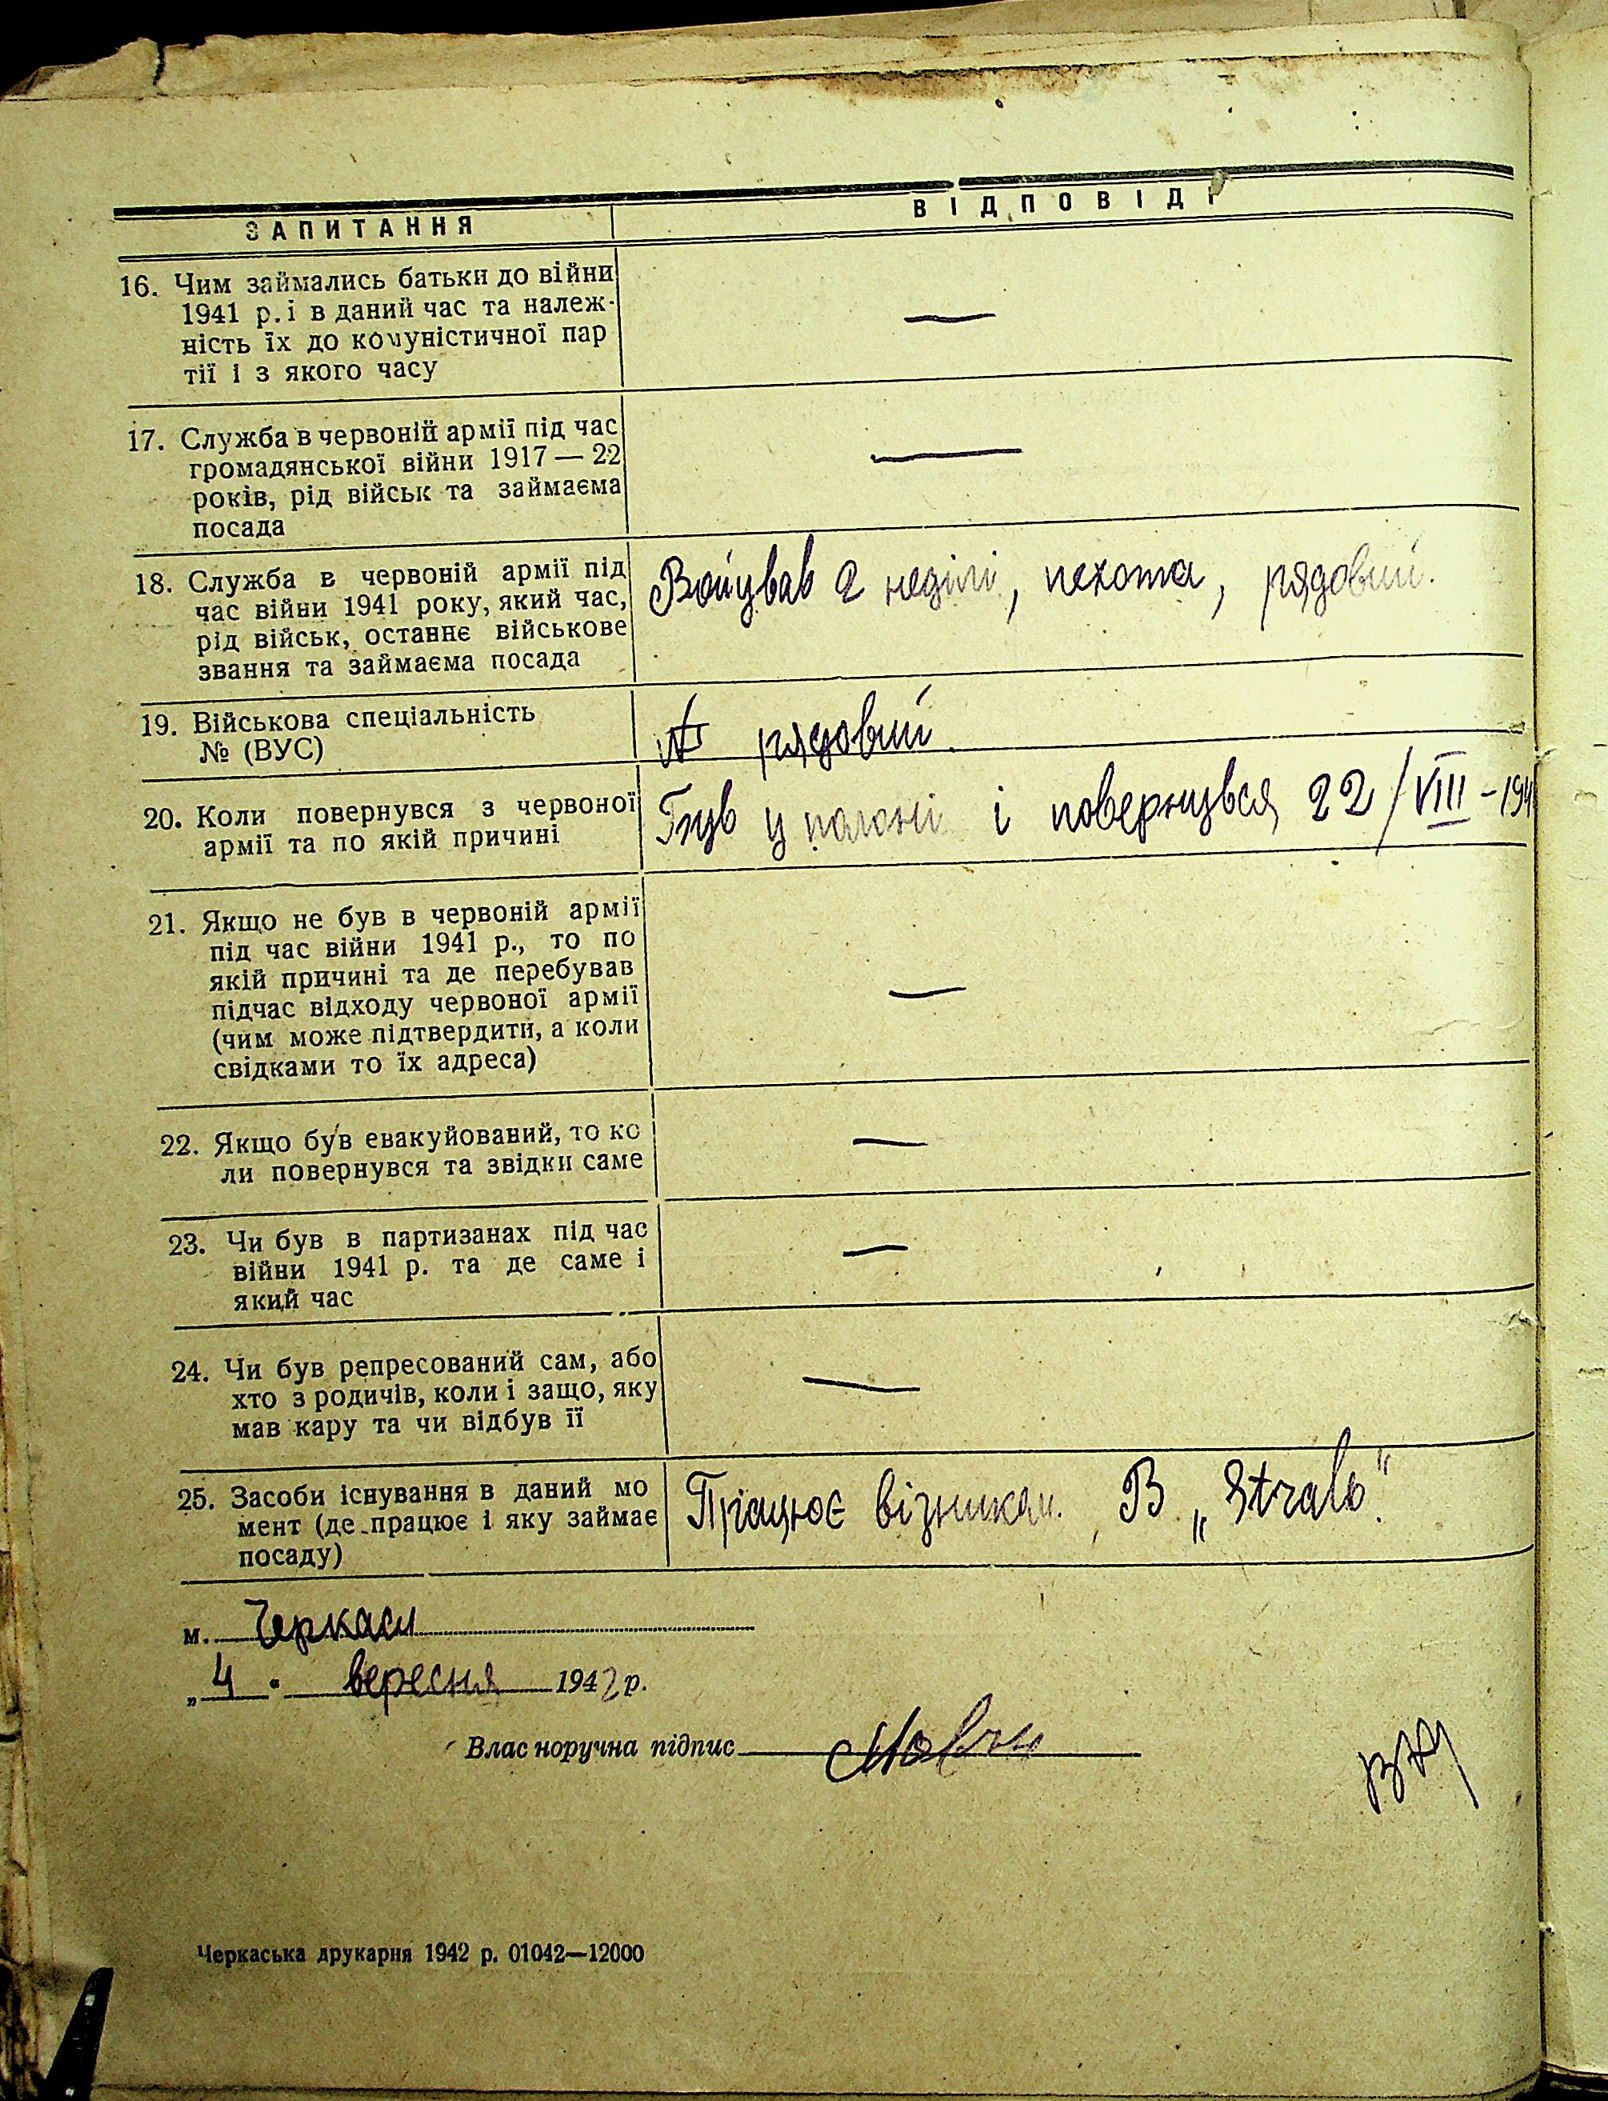 ЗАПИТАННЯ
ВІДПОВІДІ
16. Чим займались батьки до війни
1941 р. і в даний час та належ-
ність їх до комуністичної пар
тії і з якого часу
—
17. Служба в червоній армії під час
громадянської війни 1917 — 22
років, рід військ та займаєма
посада
—
18. Служба в червоній армії під
час війни 1941 року, який час,
рід військ, останнє військове
звання та займаєма посада
Воював 2 неділі, пехота, рядовий.
19. Військова спеціальність
№ (ВУС)
рядовий
20. Коли повернувся з червоної
армії та по якій причині
Був у полоні і повернувся 22/VIII-194
21. Якщо не був в червоній армії
під час війни 1941 р., то по
якій причині та де перебував
підчас відходу червоної армії
(чим може підтвердити, а коли
свідками то їх адреса)
—
22. Якщо був евакуйований, то ко
ли повернувся та звідки саме
—
23. Чи був в партизанах під час
війни 1941 р. та де саме і
який час
—
24. Чи був репресований сам, або
хто з родичів, коли і защо, яку
мав кару та чи відбув її
—
25. Засоби існування в даний мо
мент (де працює і яку займає
посаду)
Працює візником. В „Strab“.
м. Черкаси
„4" вересня 1942 р.
Влас норучна підпис
Черкаська друкарня 1942 р. 01042—12000